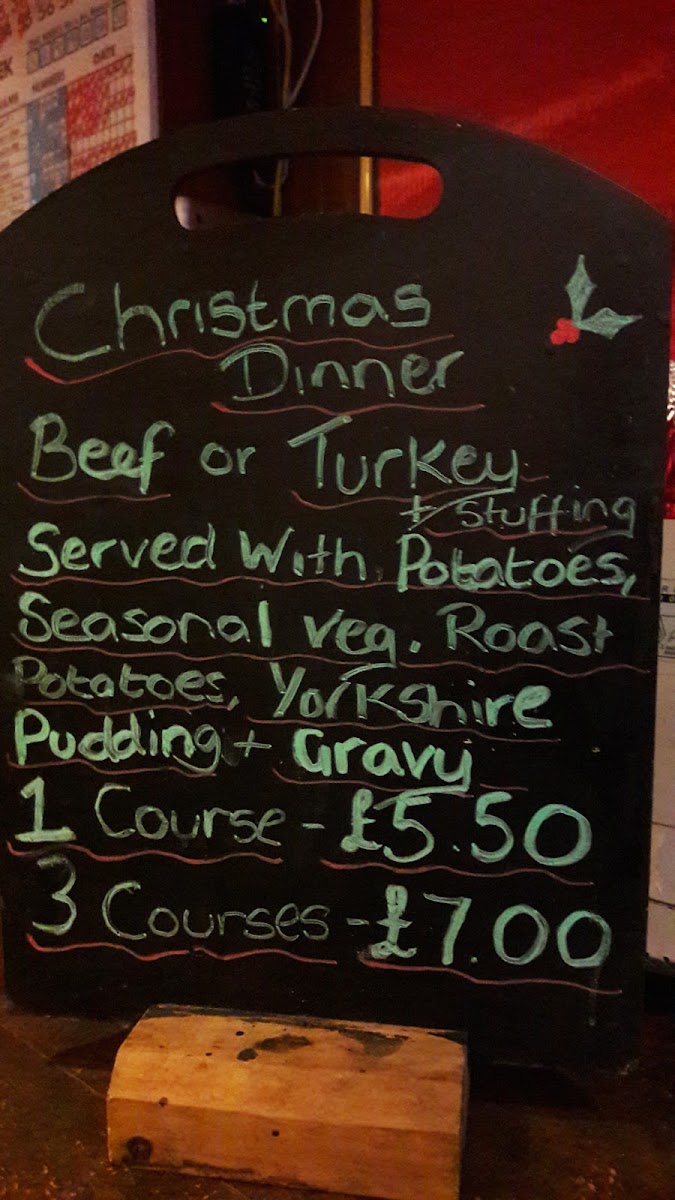 Christmas
Dinner
Beef or Turkey
+ Stuffing
Served With Potatoes,
Seasonal veg. Roast
Potatoes, Yorkshire
Pudding + Gravy
1 Course - £5.50
3 Courses - £7.00